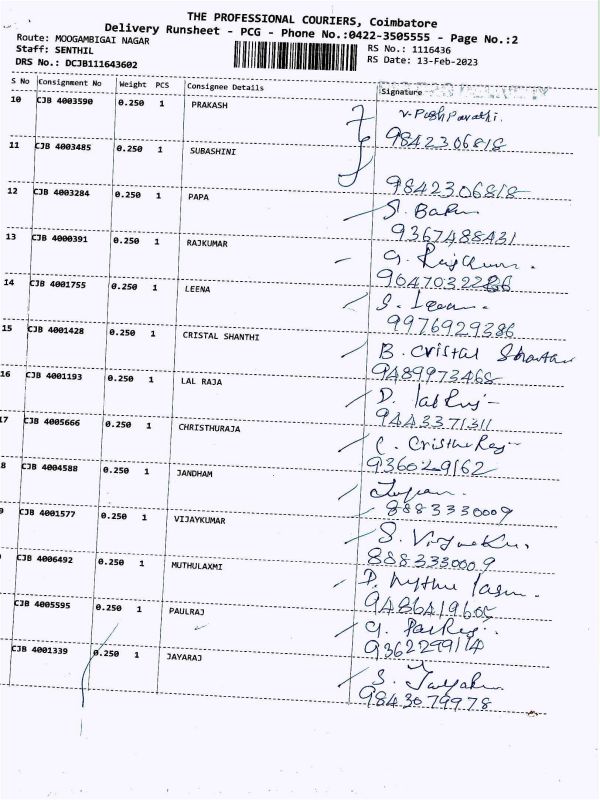 THE PROFESSIONAL COURIERS, Coimbatore
Delivery Runsheet - PCG - Phone No.:0422-3505555 - Page No.:2
Route: MOOGAMBIGAI NAGAR RS No.: 1116436
Staff: SENTHIL RS Date: 13-Feb-2023
DRS No.: DCJB111643602
S No Consignment No Weight PCS Consignee Details Signature
10 CJB 4003590 0.250 1 PRAKASH V. Pushpavathi.
9842306818
11 CJB 4003485 0.250 1 SUBASHINI
9842306818
12 CJB 4003284 0.250 1 PAPA S.
9367488431
13 CJB 4000391 0.250 1 RAJKUMAR G.
14 CJB 4001755 0.250 1 LEENA S. Leena.
9976929386
15 CJB 4001428 0.250 1 CRISTAL SHANTHI B. Cristal
9489973468
16 CJB 4001193 0.250 1 LAL RAJA D. Lal Raj
9443371311
17 CJB 4005666 0.250 1 CHRISTHURAJA C.
936029162
8 CJB 4004588 0.250 1 JANDHAM
8883330009
9 CJB 4001577 0.250 1 VIJAYKUMAR S.
8883330009
CJB 4006492 0.250 1 MUTHULAXMI P.
CJB 4005595 0.250 1 PAULRAJ G.
CJB 4001339 0.250 1 JAYARAJ S.
9843079978